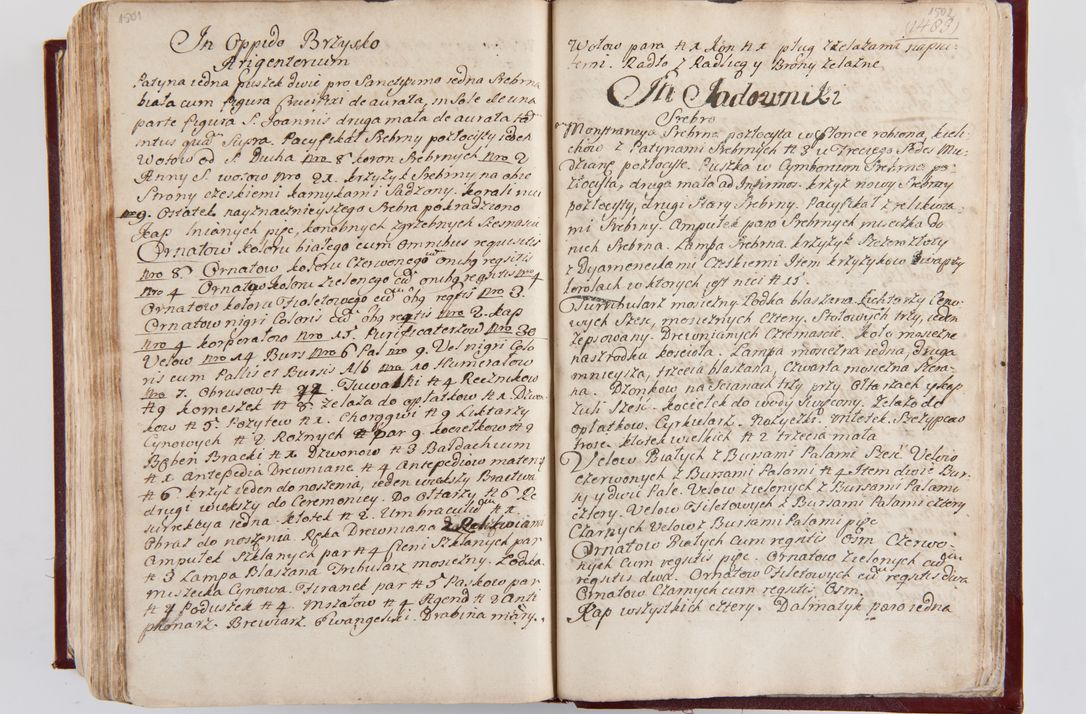 1501
In Oppido Brzysko
Argenterium
Patyna iedna puszek dwie pro Sanctissimo iedna Srebrna
biała cum figura Crucifixi de aurata, in Sole de una
parte figura S. Joannis druga mała de aurata
intus qua Supra. Pacyfikał Srebrny pozłocisty ieden
Wotow od S. Ducha Nro 8 koron Srebrnych Nro 2
Anny S. wotow Nro 21. krzyżyk Srebrny na obie
Strony czeskiemi kamykami Sadzony. korali nici
Nro 9. Ostatek nayznacznieyszego Srebra pokradziono
kap lnianych pięc, konobnych zgrzebnych
Ornatow koloru białego cum omnibus requisitis
Nro 8. Ornatow koloru Czerwonego cum omnibg regstis
Nro 4 Ornatow koloru zielonego cu omnibg regstis Nro 4
Ornatow koloru Fioletowego cu obg regstis Nro 3.
Ornatow nigri Coloris cu obg regstis Nro 2. kap
Nro 4 korporałow Nro 15. Purificaterzow Nro 30
Velow Nro 14 Burs Nro 6 Pal Nro 9. Vel nigri Colo
ris cum Pallis et Bursis Alb Nro 10 Humerałow
Nro 7. Obrusow # 22. Tuwalni # 4 Ręcznikow
# 9 komeszek # 8 żelaza do opłatkow # 1. Dzwon
kow # 5. Pozytew # 1. Chorągwi # 9 Liktarzy
Cynowych # 2 Roznych # par 9. kociełkow # 9
Bęben Bracki # 1 Dzwonow # 3 Baldachum
# 1 Antepedia Drewniane # 4 Antepediow mateny
# 6 krzyż ieden do noszenia, ieden większy Bractwa
drugi większy do Ceremoniey. Do Ołtarzy # 6 Re
surrekcya iedna. kłotek # 2. Umbraculum # 1.
Obraz do noszenia. Ręka Drewniana
Ampułek Szklanych par # 4 Cieni Szklanych par
# 3 Lampa Blaszana Tribularz mosiezny. Łodka
miseczka Cynowa. Firanek par # 5 Paskow par
# 4 Poduszek # 4. Mszałow # 4. Agend # 2 Anti
phonarz. Brewiarz. Ewangeliki. Drabina mary.
1502
(1483)
Wołow para # 1 kón # 1 pług z żelazami napra
temi. Radło z Radlicą y Brony żelazne
In Jadowniki
Srebro
Monstrancya Srebrna pozłocysta w Słonce robiona, kieli
chow z Patynami Srebrnych # 3 u Trzeciego Pedes Mie
dziane pozłocyste. Puszka w Cymborium Srebrna po
złocysta, druga mała ad Infirmos. krzyż nowy Srebrny
pozłocysty, drugi stary Srebrny. Pacyfikał z relikwia
mi Srebrny. Ampułek para Srebrnych miseczka do
nich Srebrna. Lampa Srebrna. krzyżyk Szczerozłoty
z Dyamencikami Czeskiemi Item krzyżykow przy
korolach w ktorych jest nici # 15
Turribularz mosiezny Łodka blaszana. Lichtarzy Cyno
wych Szesc, mosieznych Cztery. Stołowych trzy, ieden
zepsowany. Drewnianych Czternascie. koło mosiezne
na szrodku koscioła. Lampa mosiezna iedna, druga
mnieysza, trzecia blaszana, Czwarta mosiezna Szcze
na. Dzonkow na Scianach trzy przy Ołtarzach y kap
żuli Szesc. kociełek do wody Swięcony. Zelazo do
opłatkow. Cyrkularz. Nożyczki. Młotek. Brewyarz
troie. kłotek wielkich # 2 trzecia mała
Velow Białych z Bursami Palami Szesc Velow
czerwonych z Bursami Palami # 4 Item dwie Bur
sy y dwie Pale. Velow Zielonych z Bursami Palami
cztery. Velow Filetowych z Bursami Palami cztery
Czarnych Velow z Bursami Palami pięc
Ornatow Białych Cum regstis Osm Czerwo
nych Cum regstis pięc. Ornatow Zielonych cum
regstis dwa. Ornatow Filetowych cum regstis dwa
Ornatow Czarnych cum regstis Osm.
Kap wszystkich cztery. Dalmatyk para iedna